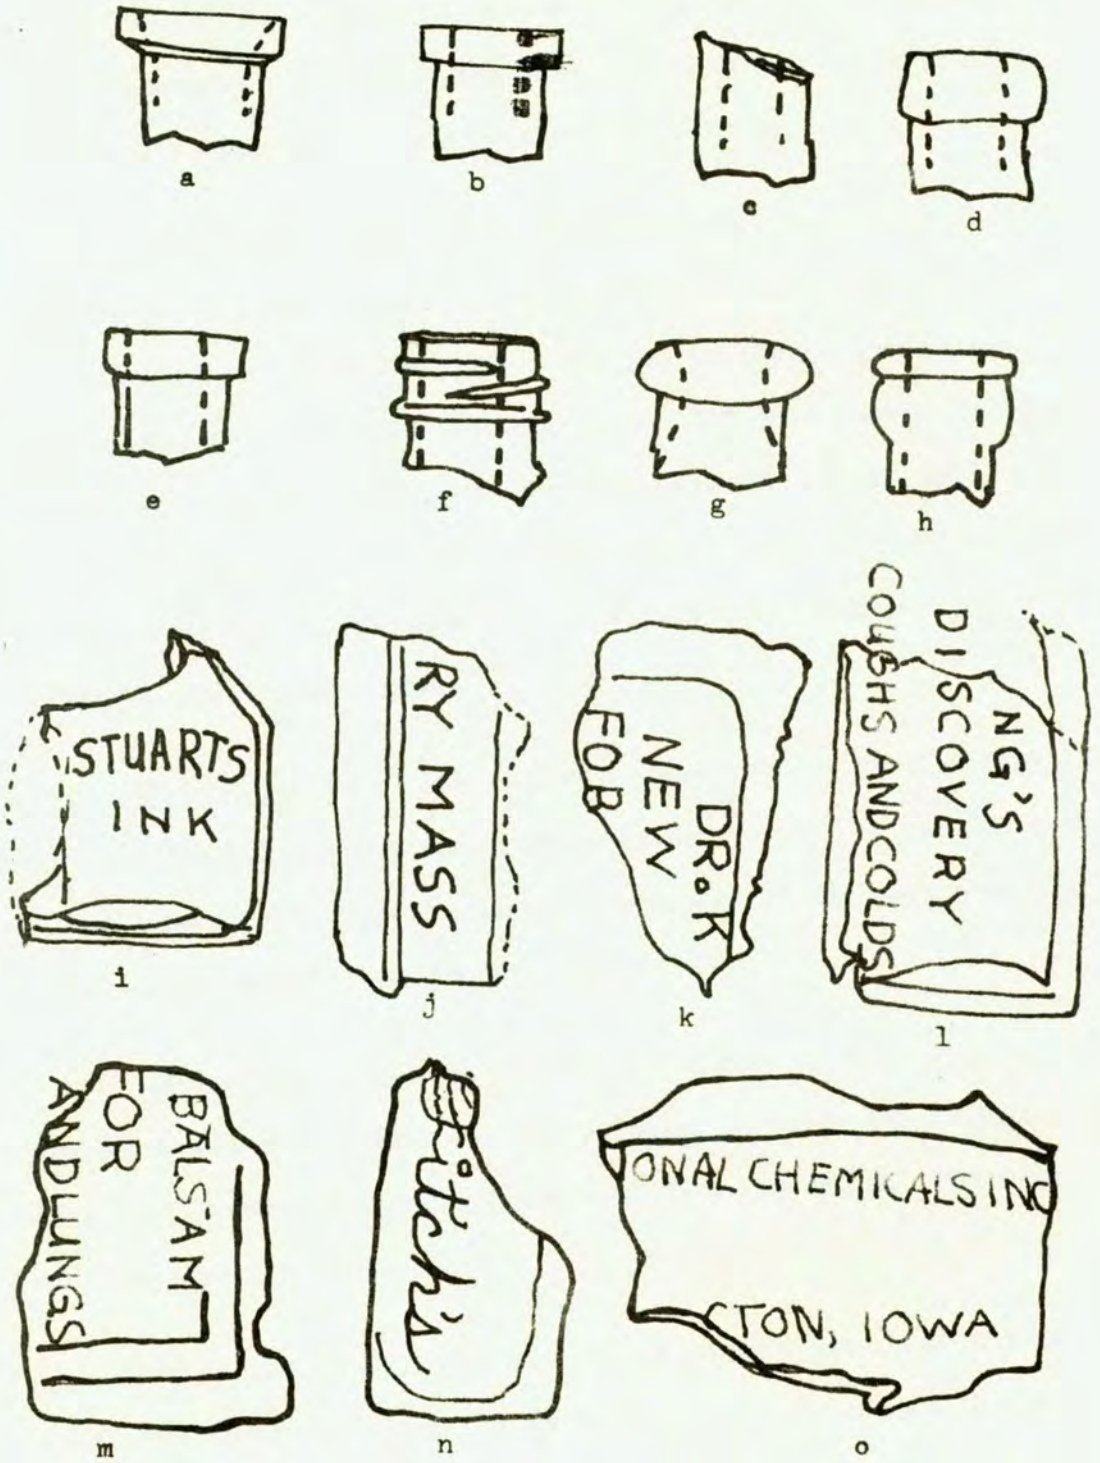 a
b
c
d
e
f
g
h
STUARTS
INK
i
RY MASS
j
DR. K
NEW
FOR
k
NG'S
DISCOVERY
COUGHS ANDCOLDS
l
BALSAM
FOR
ANDLUNGS
m
Fitch's
n
ONAL CHEMICALS INC
CTON, IOWA
o